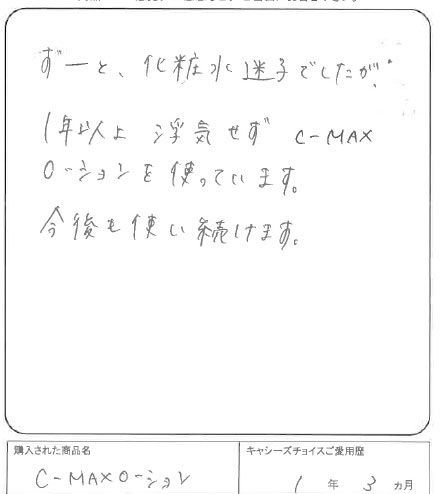 ずーと、化粧水迷子でしたが、
1年以上浮気せず C-MAX
ローションを使っています。
今後も使い続けます。
購入された商品名
C-MAXローション
キャシーズチョイスご愛用歴
1年3ヵ月